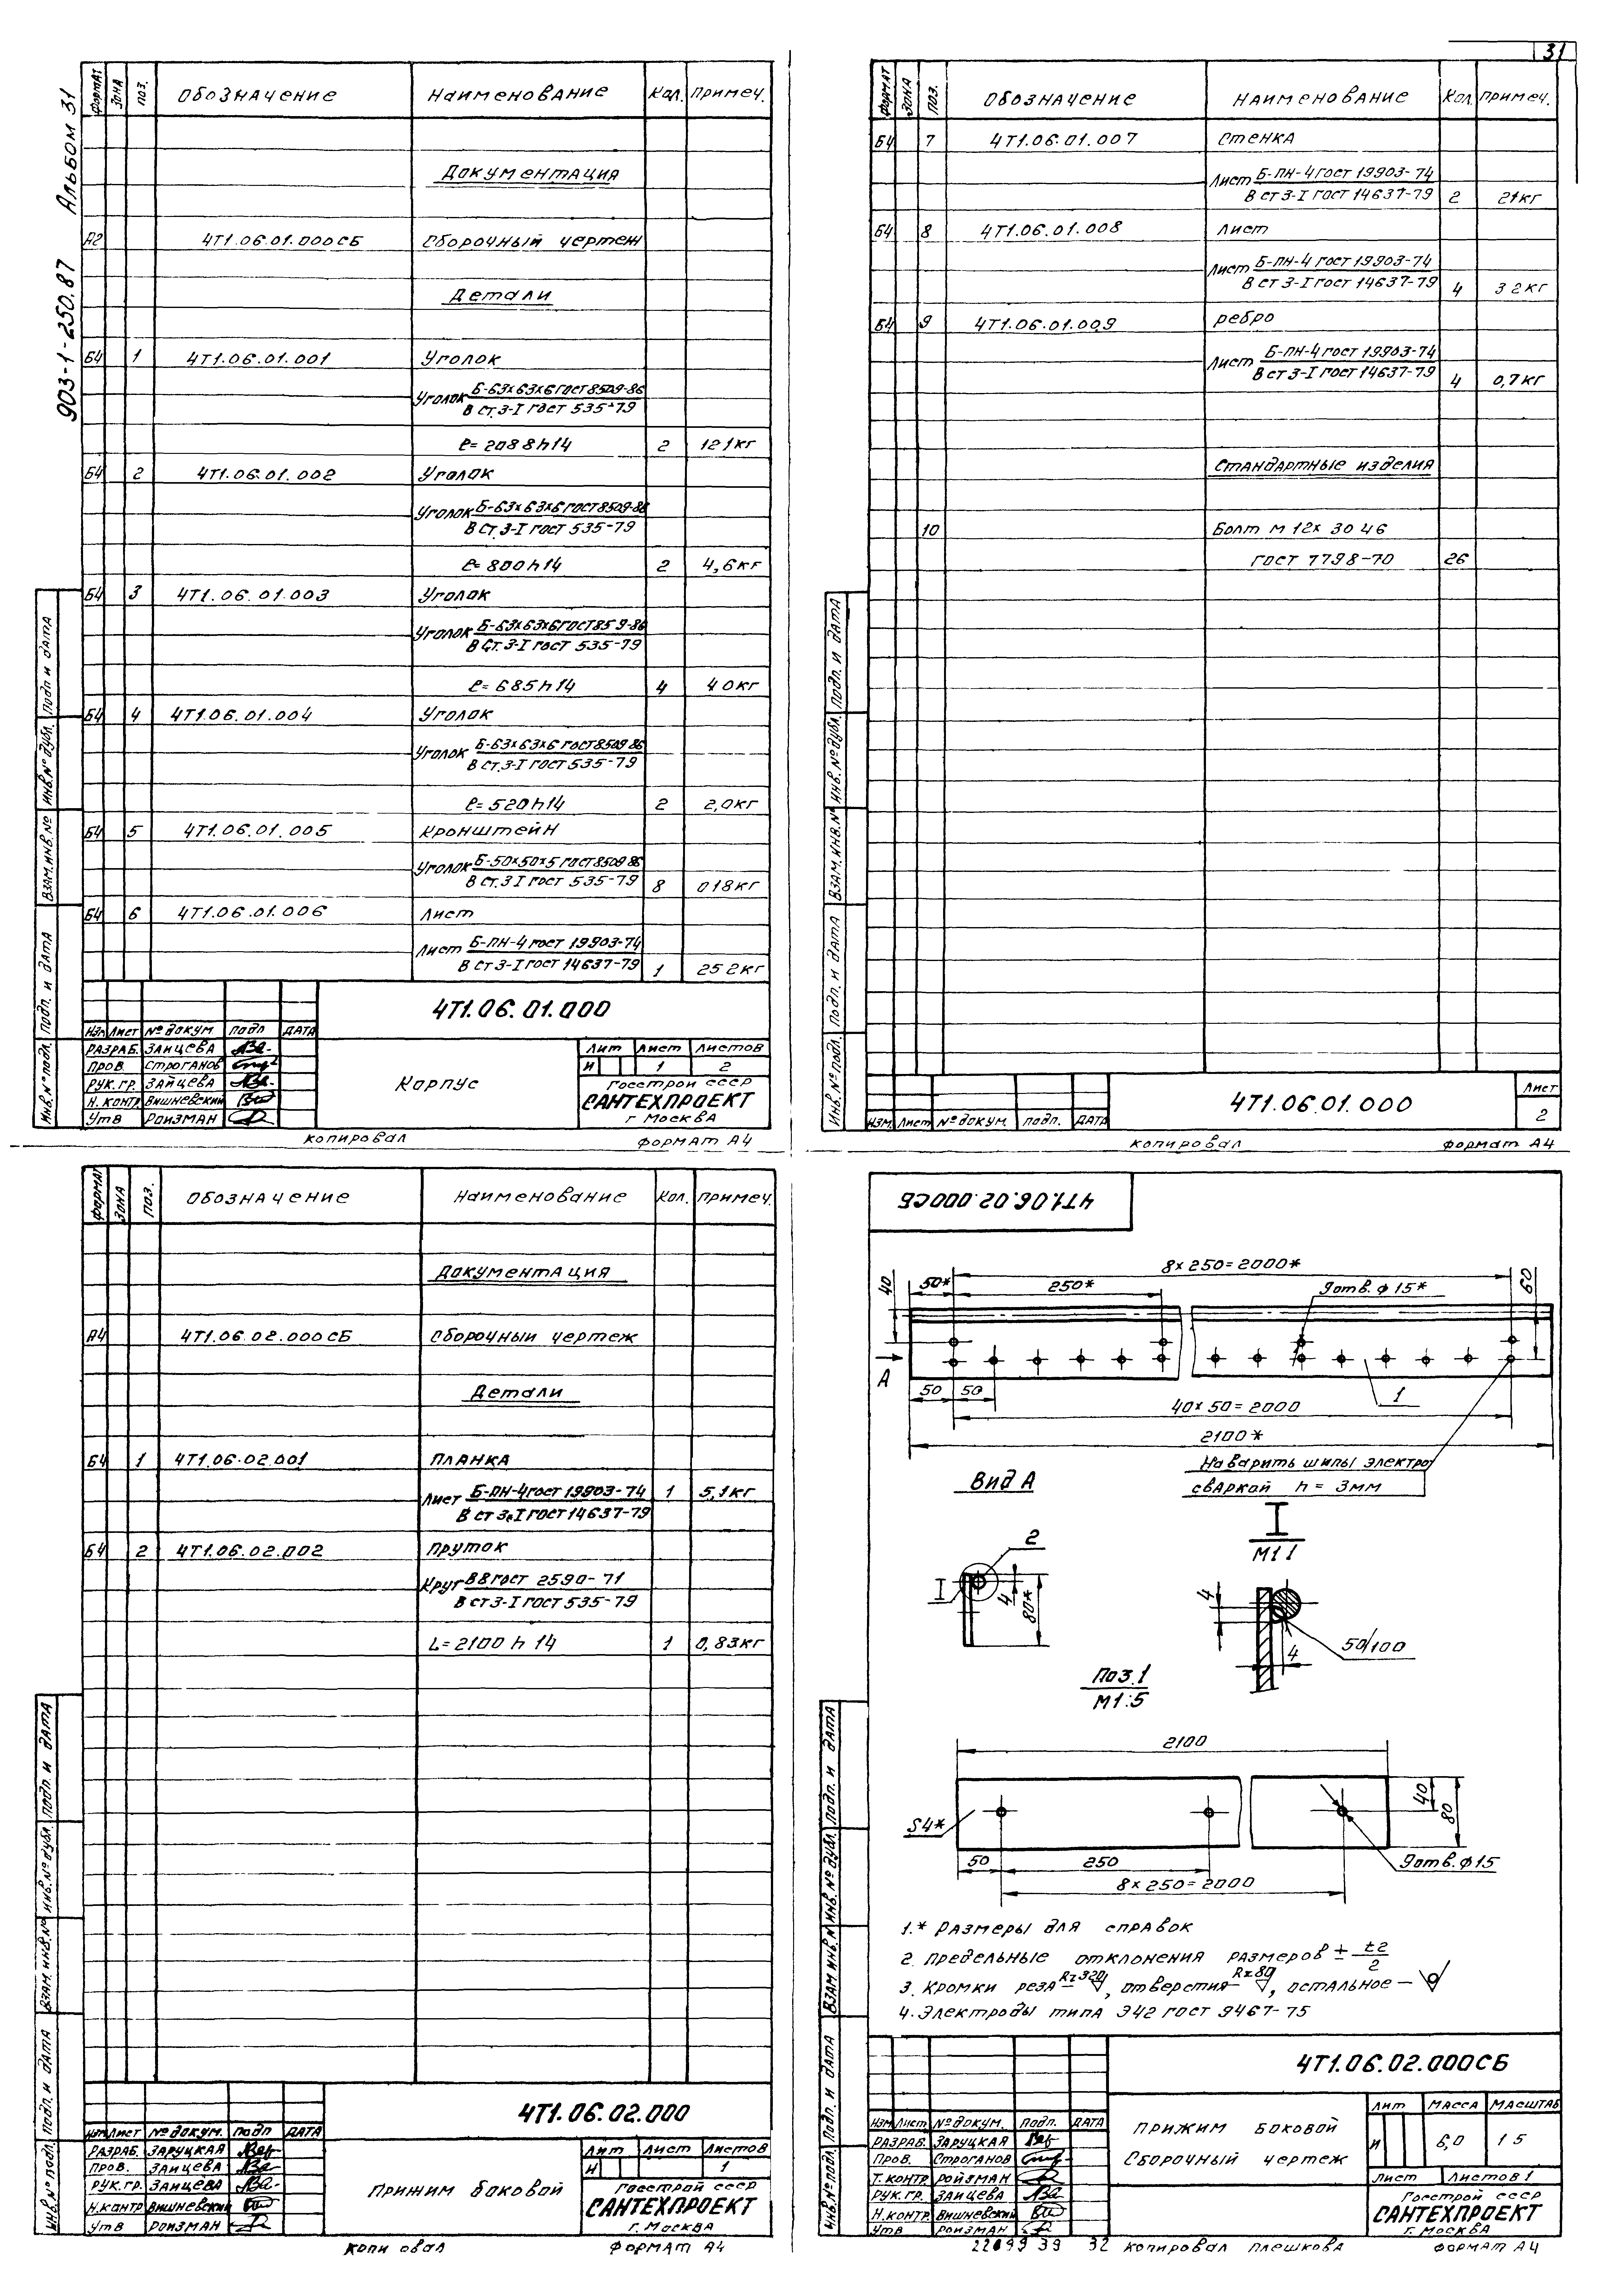 903-1-250.87 Альбом 31
31
Формат Зона Поз. Обозначение Наименование Кол. Примеч.
Документация
А2 4Т1.06.01.000СБ Сборочный чертеж
Детали
Б4 1 4Т1.06.01.001 Уголок
Уголок Б-63х63х6 ГОСТ 8509-86
В Ст.3-I ГОСТ 535-79
ℓ=2088h14 2 12 1кг
Б4 2 4Т1.06.01.002 Уголок
Уголок Б-63х63х6 ГОСТ 8509-86
В Ст.3-I ГОСТ 535-79
ℓ=800h14 2 4,6кг
Б4 3 4Т1.06.01.003 Уголок
Уголок Б-63х63х6 ГОСТ 85 9-86
В Ст.3-I ГОСТ 535-79
ℓ=685h14 4 4 0кг
Б4 4 4Т1.06.01.004 Уголок
Уголок Б-63х63х6 ГОСТ 8509 86
В Ст.3-I ГОСТ 535-79
ℓ=520h14 2 2,0кг
Б4 5 4Т1.06.01.005 Кронштейн
Уголок Б-50х50х5 ГОСТ 8509 86
В Ст.3-I ГОСТ 535-79 8 0 18кг
Б4 6 4Т1.06.01.006 Лист
Лист Б-ПН-4 ГОСТ 19903-74
В Ст 3-I ГОСТ 14637-79 1 25 2кг
4Т1.06.01.000
Изм Лист № докум. Подп Дата
Разраб. Зайцева
Пров. Строганов
Рук.гр. Зайцева
Н.контр Вишневский
Утв Ройзман
Корпус
Лит Лист Листов
И 1 2
Госстрой СССР
САНТЕХПРОЕКТ
г Москва
Копировал Формат А4
Инв.№ подл. Подп. и дата Взам.инв.№ Инв.№ дубл. Подп и дата
Формат Зона Поз. Обозначение Наименование Кол. Примеч.
Б4 7 4Т1.06.01.007 Стенка
Лист Б-ПН-4 ГОСТ 19903-74
В Ст 3-I ГОСТ 14637-79 2 21кг
Б4 8 4Т1.06.01.008 Лист
Лист Б-ПН-4 ГОСТ 19903-74
В Ст 3-I ГОСТ 14637-79 4 3 2кг
Б4 9 4Т1.06.01.009 Ребро
Лист Б-ПН-4 ГОСТ 19903-74
В Ст 3-I ГОСТ 14637-79 4 0,7кг
Стандартные изделия
10 Болт М 12х 30 46
ГОСТ 7798-70 26
Изм. Лист № докум. Подп. Дата
4Т1.06.01.000
Лист
2
Копировал Формат А4
Инв.№ подл. Подп. и дата Взам.инв.№ Инв.№ дубл. Подп. и дата
Форма Зона Поз. Обозначение Наименование Кол. Примеч.
Документация
А4 4Т1.06.02.000СБ Сборочный чертеж
Детали
Б4 1 4Т1.06.02.001 Планка
Лист Б-ПН-4 ГОСТ 19903-74 1 5,1кг
В Ст 3-I ГОСТ 14637-79
Б4 2 4Т1.06.02.002 Пруток
Круг В8 ГОСТ 2590-71
В Ст 3-I ГОСТ 535-79
L=2100 h 14 1 0,83кг
4Т1.06.02.000
Изм Лист № докум. Подп Дата
Разраб. Заруцкая
Пров. Зайцева
Рук.гр. Зайцева
Н.контр Вишневский
Утв Ройзман
Прижим боковой
Лит Лист Листов
И 1
Госстрой СССР
САНТЕХПРОЕКТ
г. Москва
Копи овал Формат А4
Инв.№ подл. Подп. и дата Взам.инв.№ Инв.№ дубл. Подп. и дата
4Т1.06.02.000СБ
8х250=2000*
50* 250* 9 отв. ф 15*
40 60
А
50 50
1
40х50=2000
2100*
Вид А
Наварить шипы электро
сваркой h = 3мм
I
М1 1
2
I
4 80*
4
4
50/100
Поз.1
М1:5
2100
S4*
40 80
50 250
9 отв. ф15
8х250=2000
1.* Размеры для справок
2. Предельные отклонения размеров ± ±2/2
3. Кромки реза Rz320, отверстия Rz80, остальное –
4. Электроды типа Э42 ГОСТ 9467-75
4Т1.06.02.000СБ
Изм Лист № докум. Подп. Дата
Разраб. Заруцкая
Пров. Строганов
Т.контр Ройзман
Рук.гр. Зайцева
Н.контр. Вишневский
Утв Ройзман
Прижим боковой
Сборочный чертеж
Лит Масса Масштаб
И 6,0 1 5
Лист Листов 1
Госстрой СССР
САНТЕХПРОЕКТ
г. Москва
22099 39 32 Копировал Плешкова Формат А4
Инв.№ подл. Подп. и дата Взам инв.№ Инв.№ дубл. Подп. и дата